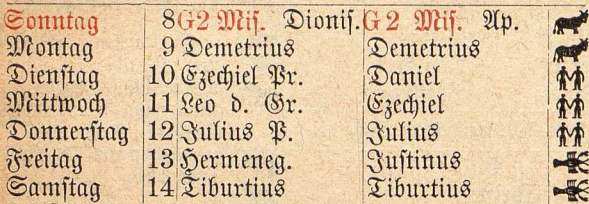 Sonntag 8 G 2 Miſ. Dioniſ. G 2 Miſ. Ap.
Montag 9 Demetrius Demetrius
Dienſtag 10 Ezechiel Pr. Daniel
Mittwoch 11 Leo d. Gr. Ezechiel
Donnerſtag 12 Julius P. Julius
Freitag 13 Hermeneg. Juſtinus
Samſtag 14 Tiburtius Tiburtius